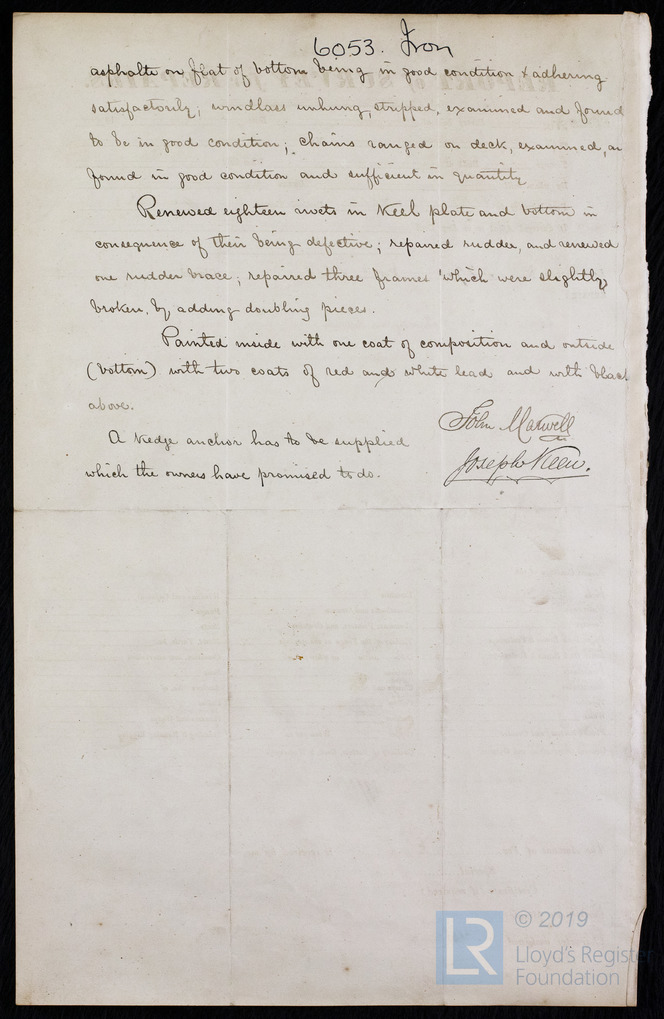 6053. Iron
asphalte on flat of bottom being in good condition & adhering
satisfactorily; windlass unhung, stripped, examined and found
to be in good condition; chains ranged on deck, examined, an
found in good condition and sufficient in quantity
Renewed eighteen rivets in Keel plate and bottom in
consequence of their being defective; repaired rudder, and renewed
one rudder brace; repaired three frames which were slightly
broken, by adding doubling pieces.
Painted inside with one coat of composition and outside
(bottom) with two coats of red and white lead and with black
above.
A Kedge anchor has to be supplied
which the owners have promised to do.
John Maxwell
Joseph Keen.
LR © 2019
Lloyd's Register
Foundation